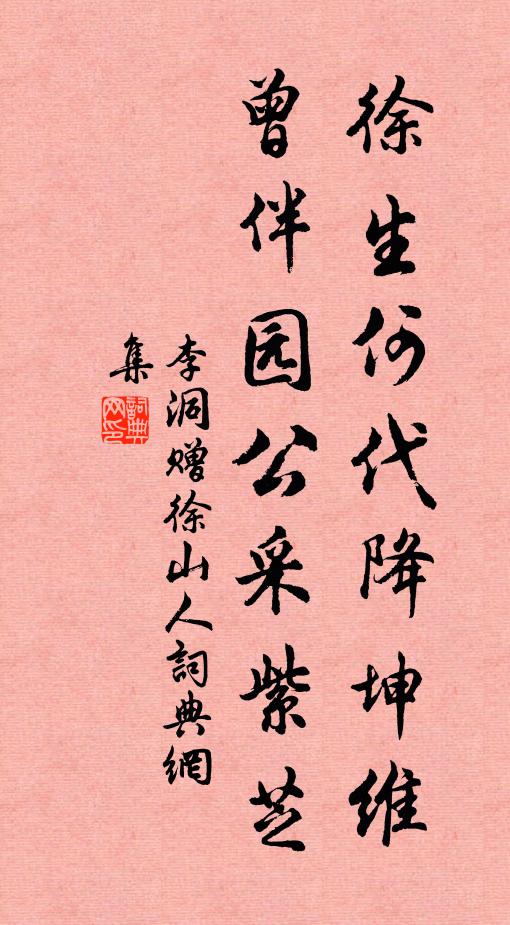 徐生何代降坤维
曾伴园公采紫芝
李洞赠徐山人詞典網
集
詞典网印